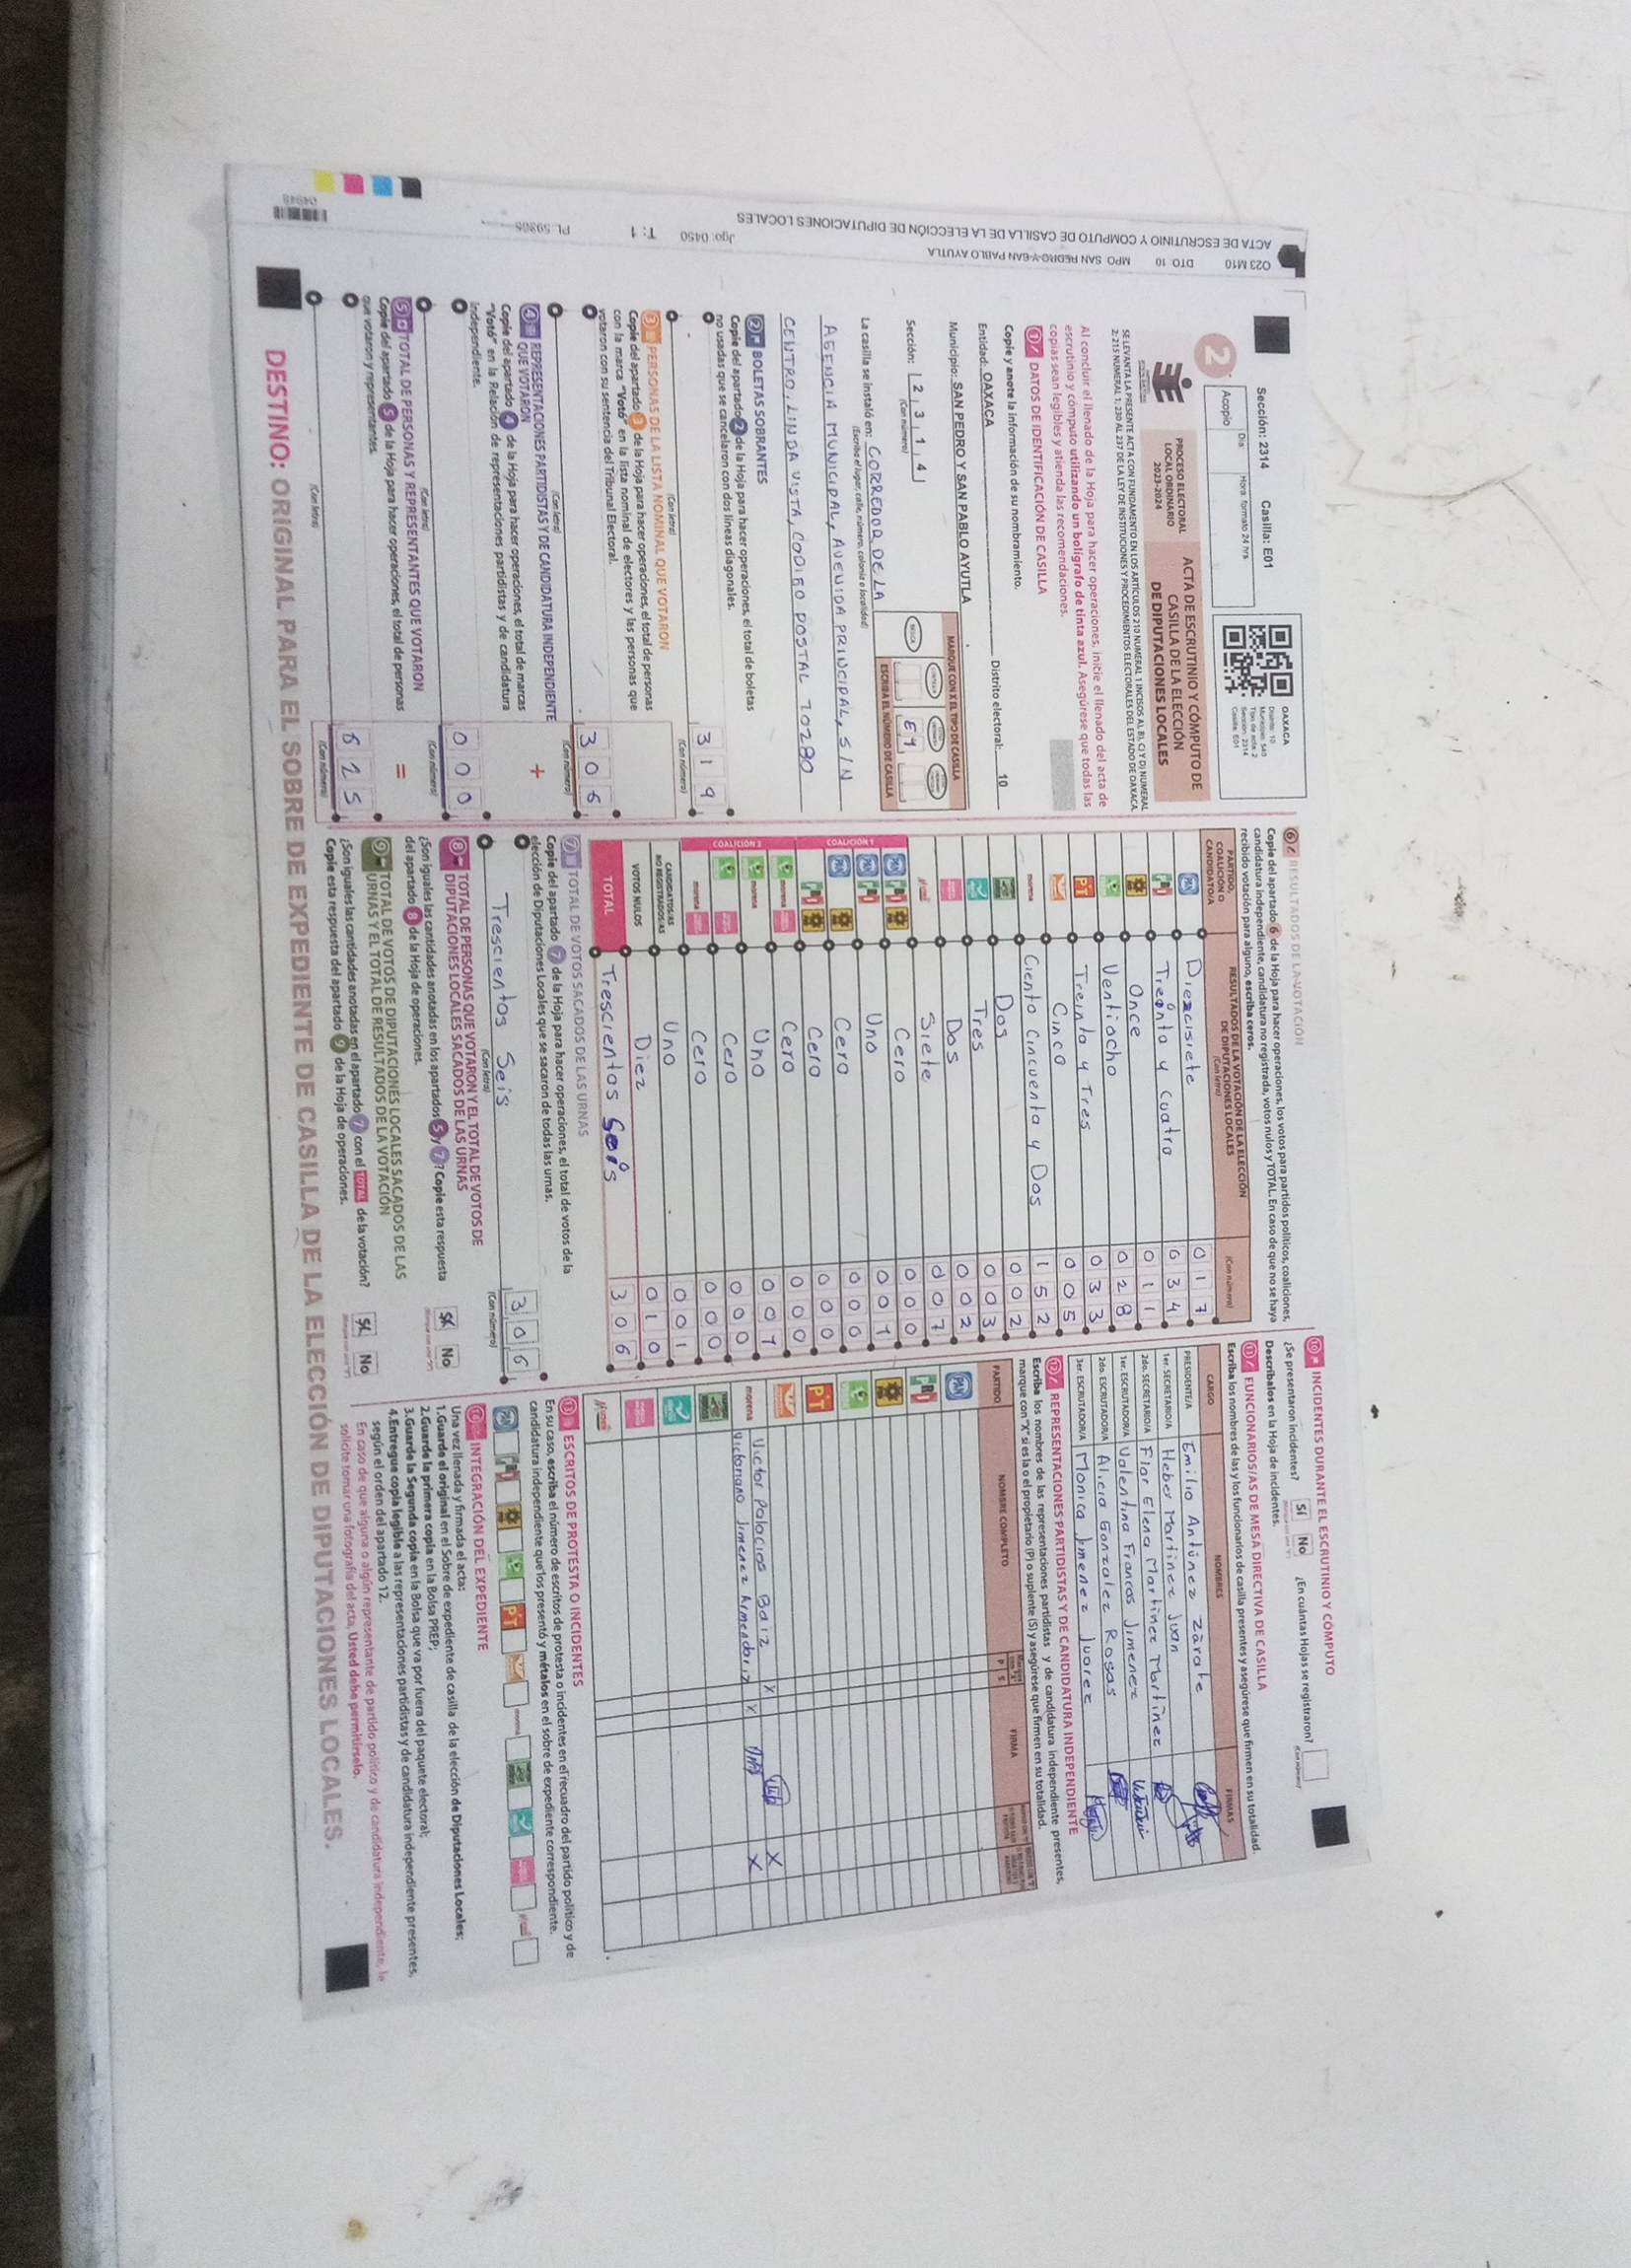 Sección: 2314 Casilla: E01
Día Hora: formato 24 hrs
Acopio
OAXACA
Distrito: 10
Tipo de acta: 2
Sección: 2314
Casilla: E01
2
PROCESO ELECTORAL
LOCAL ORDINARIO
2023-2024
ACTA DE ESCRUTINIO Y CÓMPUTO DE
CASILLA DE LA ELECCIÓN
DE DIPUTACIONES LOCALES
SE LEVANTA LA PRESENTE ACTA CON FUNDAMENTO EN LOS ARTÍCULOS 210 NUMERAL 1 INCISOS A), B), C) Y D) NUMERAL
2; 215 NUMERAL 1; 230 AL 237 DE LA LEY DE INSTITUCIONES Y PROCEDIMIENTOS ELECTORALES DEL ESTADO DE OAXACA.
Al concluir el llenado de la Hoja para hacer operaciones, inicie el llenado del acta de
escrutinio y cómputo utilizando un bolígrafo de tinta azul. Asegúrese que todas las
copias sean legibles y atienda las recomendaciones.
1 DATOS DE IDENTIFICACIÓN DE CASILLA
Copie y anote la información de su nombramiento.
Entidad: OAXACA Distrito electoral: 10
Municipio: SAN PEDRO Y SAN PABLO AYUTLA
Sección: 2 3 1 4
(Con número)
MARQUE CON X EL TIPO DE CASILLA
BÁSICA
E1
ESCRIBA EL NÚMERO DE CASILLA
La casilla se instaló en: CORREDOR DE LA
(Escriba el lugar, calle, número, colonia o localidad)
AGENCIA MUNICIPAL, AVENIDA PRINCIPAL, S/N
CENTRO, LINDA VISTA, CODIGO POSTAL 70280
2 BOLETAS SOBRANTES
Copie del apartado 2 de la Hoja para hacer operaciones, el total de boletas
no usadas que se cancelaron con dos líneas diagonales.
3 1 9
(Con letra) (Con número)
3 PERSONAS DE LA LISTA NOMINAL QUE VOTARON
Copie del apartado 3 de la Hoja para hacer operaciones, el total de personas
con la marca "Votó" en la lista nominal de electores y las personas que
votaron con su sentencia del Tribunal Electoral.
3 0 6
(Con letra) (Con número)
4 REPRESENTACIONES PARTIDISTAS Y DE CANDIDATURA INDEPENDIENTE
QUE VOTARON
+
Copie del apartado 4 de la Hoja para hacer operaciones, el total de marcas
"Votó" en la Relación de representaciones partidistas y de candidatura
independiente.
0 0 0
(Con letra) (Con número)
5 TOTAL DE PERSONAS Y REPRESENTANTES QUE VOTARON
=
Copie del apartado 5 de la Hoja para hacer operaciones, el total de personas
que votaron y representantes.
6 2 5
(Con letra) (Con número)
6 RESULTADOS DE LA VOTACIÓN
Copie del apartado 6 de la Hoja para hacer operaciones, los votos para partidos políticos, coaliciones,
candidatura independiente, candidatura no registrada, votos nulos y TOTAL. En caso de que no se haya
recibido votación para alguno, escriba ceros.
PARTIDO,
COALICIÓN O
CANDIDATO/A
RESULTADOS DE LA VOTACIÓN DE LA ELECCIÓN
DE DIPUTACIONES LOCALES
(Con letra) (Con número)
PAN Diezcisiete 0 1 7
PRI Treinta y Cuatro 0 3 4
Once 0 1 1
Ventiocho 0 2 8
PT Treinta y Tres 0 3 3
Cinco 0 0 5
morena Ciento Cincuenta y Dos 1 5 2
Dos 0 0 2
Tres 0 0 3
Dos 0 0 2
Siete 0 0 7
COALICIÓN 1
PAN PRI Cero 0 0 0
PAN PRI Uno 0 0 1
PAN Cero 0 0 0
PRI Cero 0 0 0
COALICIÓN 2
morena Cero 0 0 0
morena Uno 0 0 1
Cero 0 0 0
morena Cero 0 0 0
CANDIDATOS/AS
NO REGISTRADOS/AS Uno 0 0 1
VOTOS NULOS Diez 0 1 0
TOTAL Trescientos Seis 3 0 6
7 TOTAL DE VOTOS SACADOS DE LAS URNAS
Copie del apartado 7 de la Hoja para hacer operaciones, el total de votos de la
elección de Diputaciones Locales que se sacaron de todas las urnas.
Trescientos Seis 3 0 6
(Con letra) (Con número)
8 TOTAL DE PERSONAS QUE VOTARON Y EL TOTAL DE VOTOS DE
DIPUTACIONES LOCALES SACADOS DE LAS URNAS
¿Son iguales las cantidades anotadas en los apartados 5 y 7? Copie esta respuesta
del apartado 8 de la Hoja de operaciones.
Sí No
9 TOTAL DE VOTOS DE DIPUTACIONES LOCALES SACADOS DE LAS
URNAS Y EL TOTAL DE RESULTADOS DE LA VOTACIÓN
¿Son iguales las cantidades anotadas en el apartado 7 con el TOTAL de la votación?
Copie esta respuesta del apartado 9 de la Hoja de operaciones.
Sí No
10 INCIDENTES DURANTE EL ESCRUTINIO Y CÓMPUTO
¿Se presentaron incidentes? Sí No ¿En cuántas Hojas se registraron?
(Con número)
Descríbalos en la Hoja de incidentes.
11 FUNCIONARIOS/AS DE MESA DIRECTIVA DE CASILLA
Escriba los nombres de las y los funcionarios de casilla presentes y asegúrese que firmen en su totalidad.
CARGO NOMBRES FIRMAS
PRESIDENTE/A Emilio Antúnez Zárate
1er. SECRETARIO/A Heber Martinez Juan
2do. SECRETARIO/A Flor Elena Martinez Martinez
1er. ESCRUTADOR/A Valentina Francos Jimenez
2do. ESCRUTADOR/A Alicia Gonzalez Rosas
3er. ESCRUTADOR/A Monica Jimenez Juarez
12 REPRESENTACIONES PARTIDISTAS Y DE CANDIDATURA INDEPENDIENTE
Escriba los nombres de las representaciones partidistas y de candidatura independiente presentes,
marque con "X" si es la o el propietario (P) o suplente (S) y asegúrese que firmen en su totalidad.
PARTIDO NOMBRE COMPLETO P S FIRMA
PAN
PRI
PT
morena Victor Palacios Baiz X X
Victoriano Jimenez Armendariz X X
13 ESCRITOS DE PROTESTA O INCIDENTES
En su caso, escriba el número de escritos de protesta o incidentes en el recuadro del partido político y de
candidatura independiente que los presentó y métalos en el sobre de expediente correspondiente.
PAN PRI PT morena
14 INTEGRACIÓN DEL EXPEDIENTE
Una vez llenada y firmada el acta:
1.Guarde el original en el Sobre de expediente de casilla de la elección de Diputaciones Locales;
2.Guarde la primera copia en la Bolsa PREP;
3.Guarde la Segunda copia en la Bolsa que va por fuera del paquete electoral;
4.Entregue copia legible a las representaciones partidistas y de candidatura independiente presentes,
según el orden del apartado 12.
En caso de que alguna o algún representante de partido político y de candidatura independiente, le
solicite tomar una fotografía del acta, Usted debe permitírselo.
DESTINO: ORIGINAL PARA EL SOBRE DE EXPEDIENTE DE CASILLA DE LA ELECCIÓN DE DIPUTACIONES LOCALES.
023 M10 DTO 10 MPO SAN PEDRO Y SAN PABLO AYUTLA
ACTA DE ESCRUTINIO Y CÓMPUTO DE CASILLA DE LA ELECCIÓN DE DIPUTACIONES LOCALES
Jgo: 0450 T: 1
04948